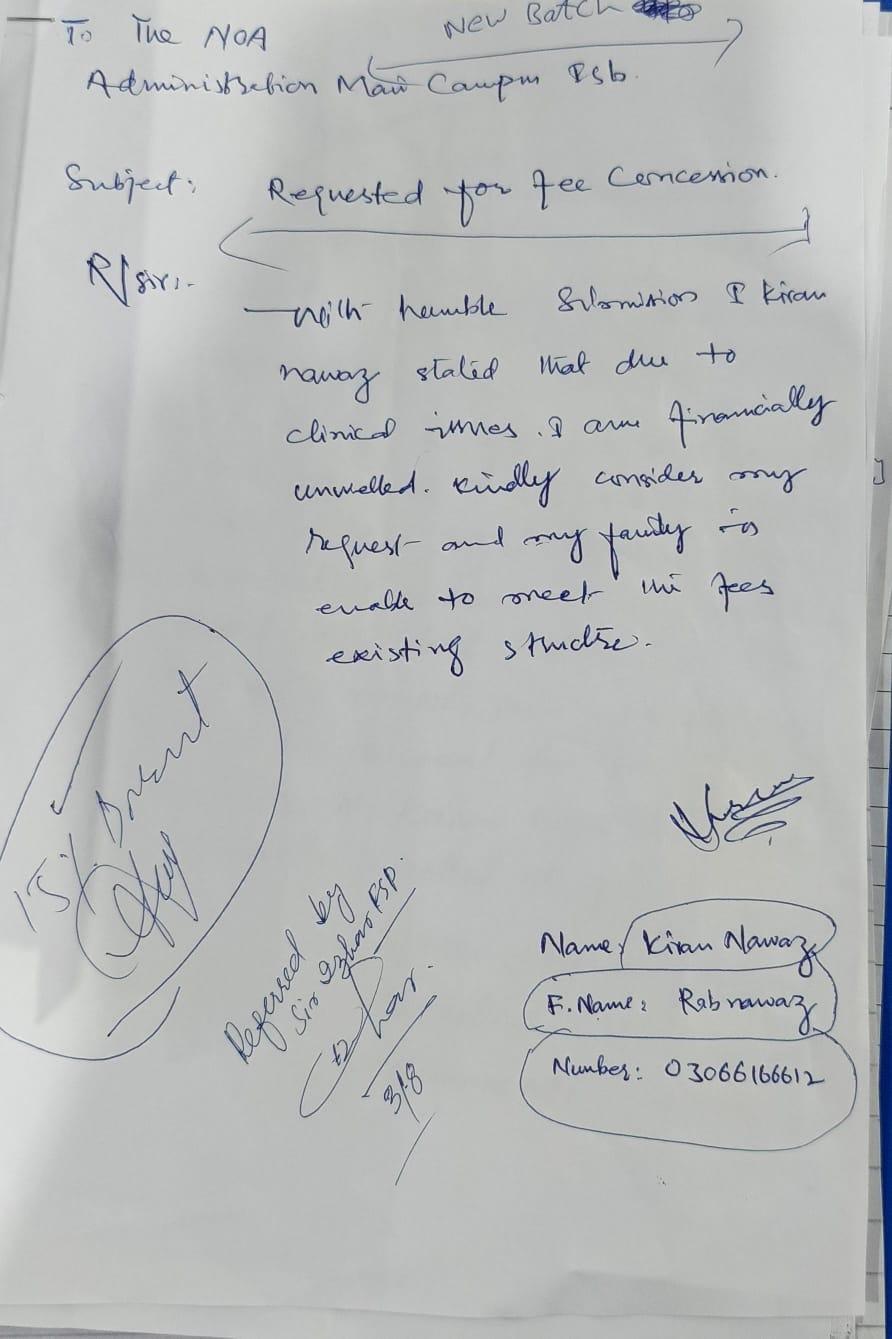 New Batch
To The NOA
Administration Main Campus Fsb.
Subject: Requested for fee Concession.
R/sir:-
with humble Submission I Kiran
nawaz stated that due to
clinical issues. I am financially
unwelled. Kindly consider my
request and my family is
enable to meet the fees
existing
15%
Referred by
Sir Izhar FSP.
Izhar.
3/8
Name: Kiran Nawaz
F. Name: Rab nawaz
Number: 03066166612